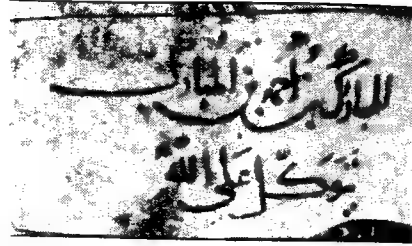 للمبارك بن احمد بن المبارك
توكل على الله